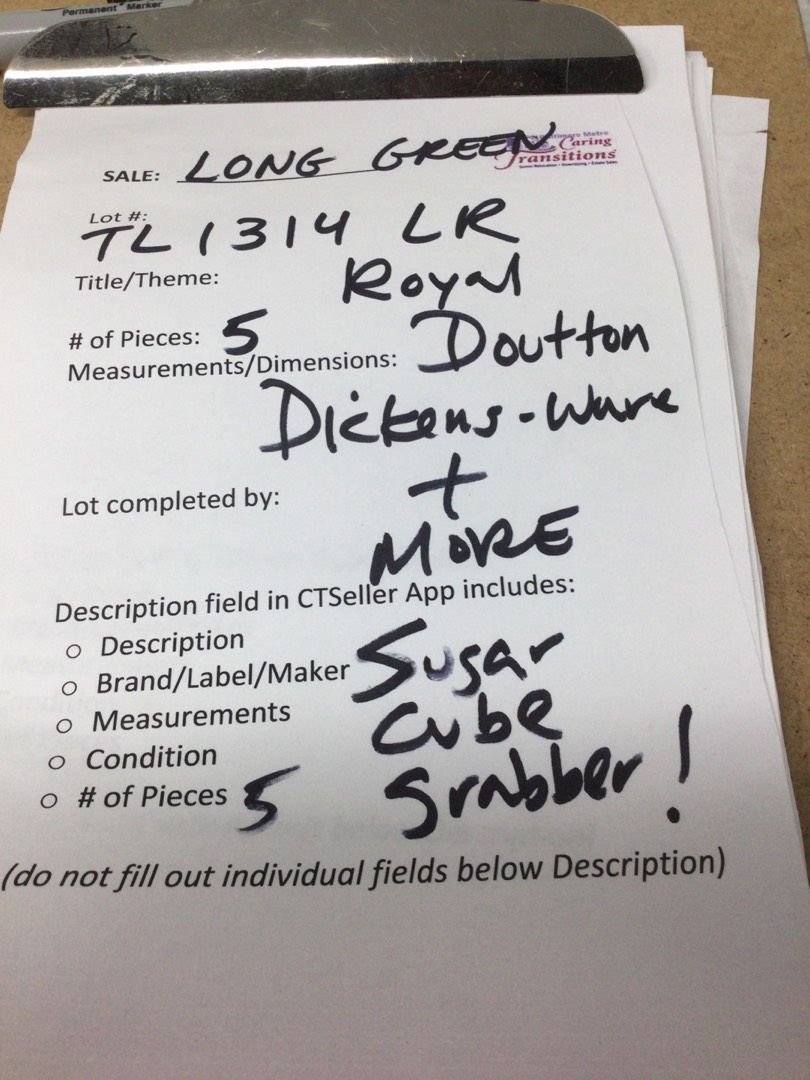 Permanent Marker
SALE: LONG GREEN
Baltimore Metro
Caring
Transitions
Lot #:
TL 1314 LR
Title/Theme: Royal
# of Pieces: 5
Measurements/Dimensions: Doutton
Dickens-Ware
+
Lot completed by:
MORE
Description field in CTSeller App includes:
o Description
o Brand/Label/Maker Sugar
o Measurements Cube
o Condition
o # of Pieces 5 Grabber!
(do not fill out individual fields below Description)